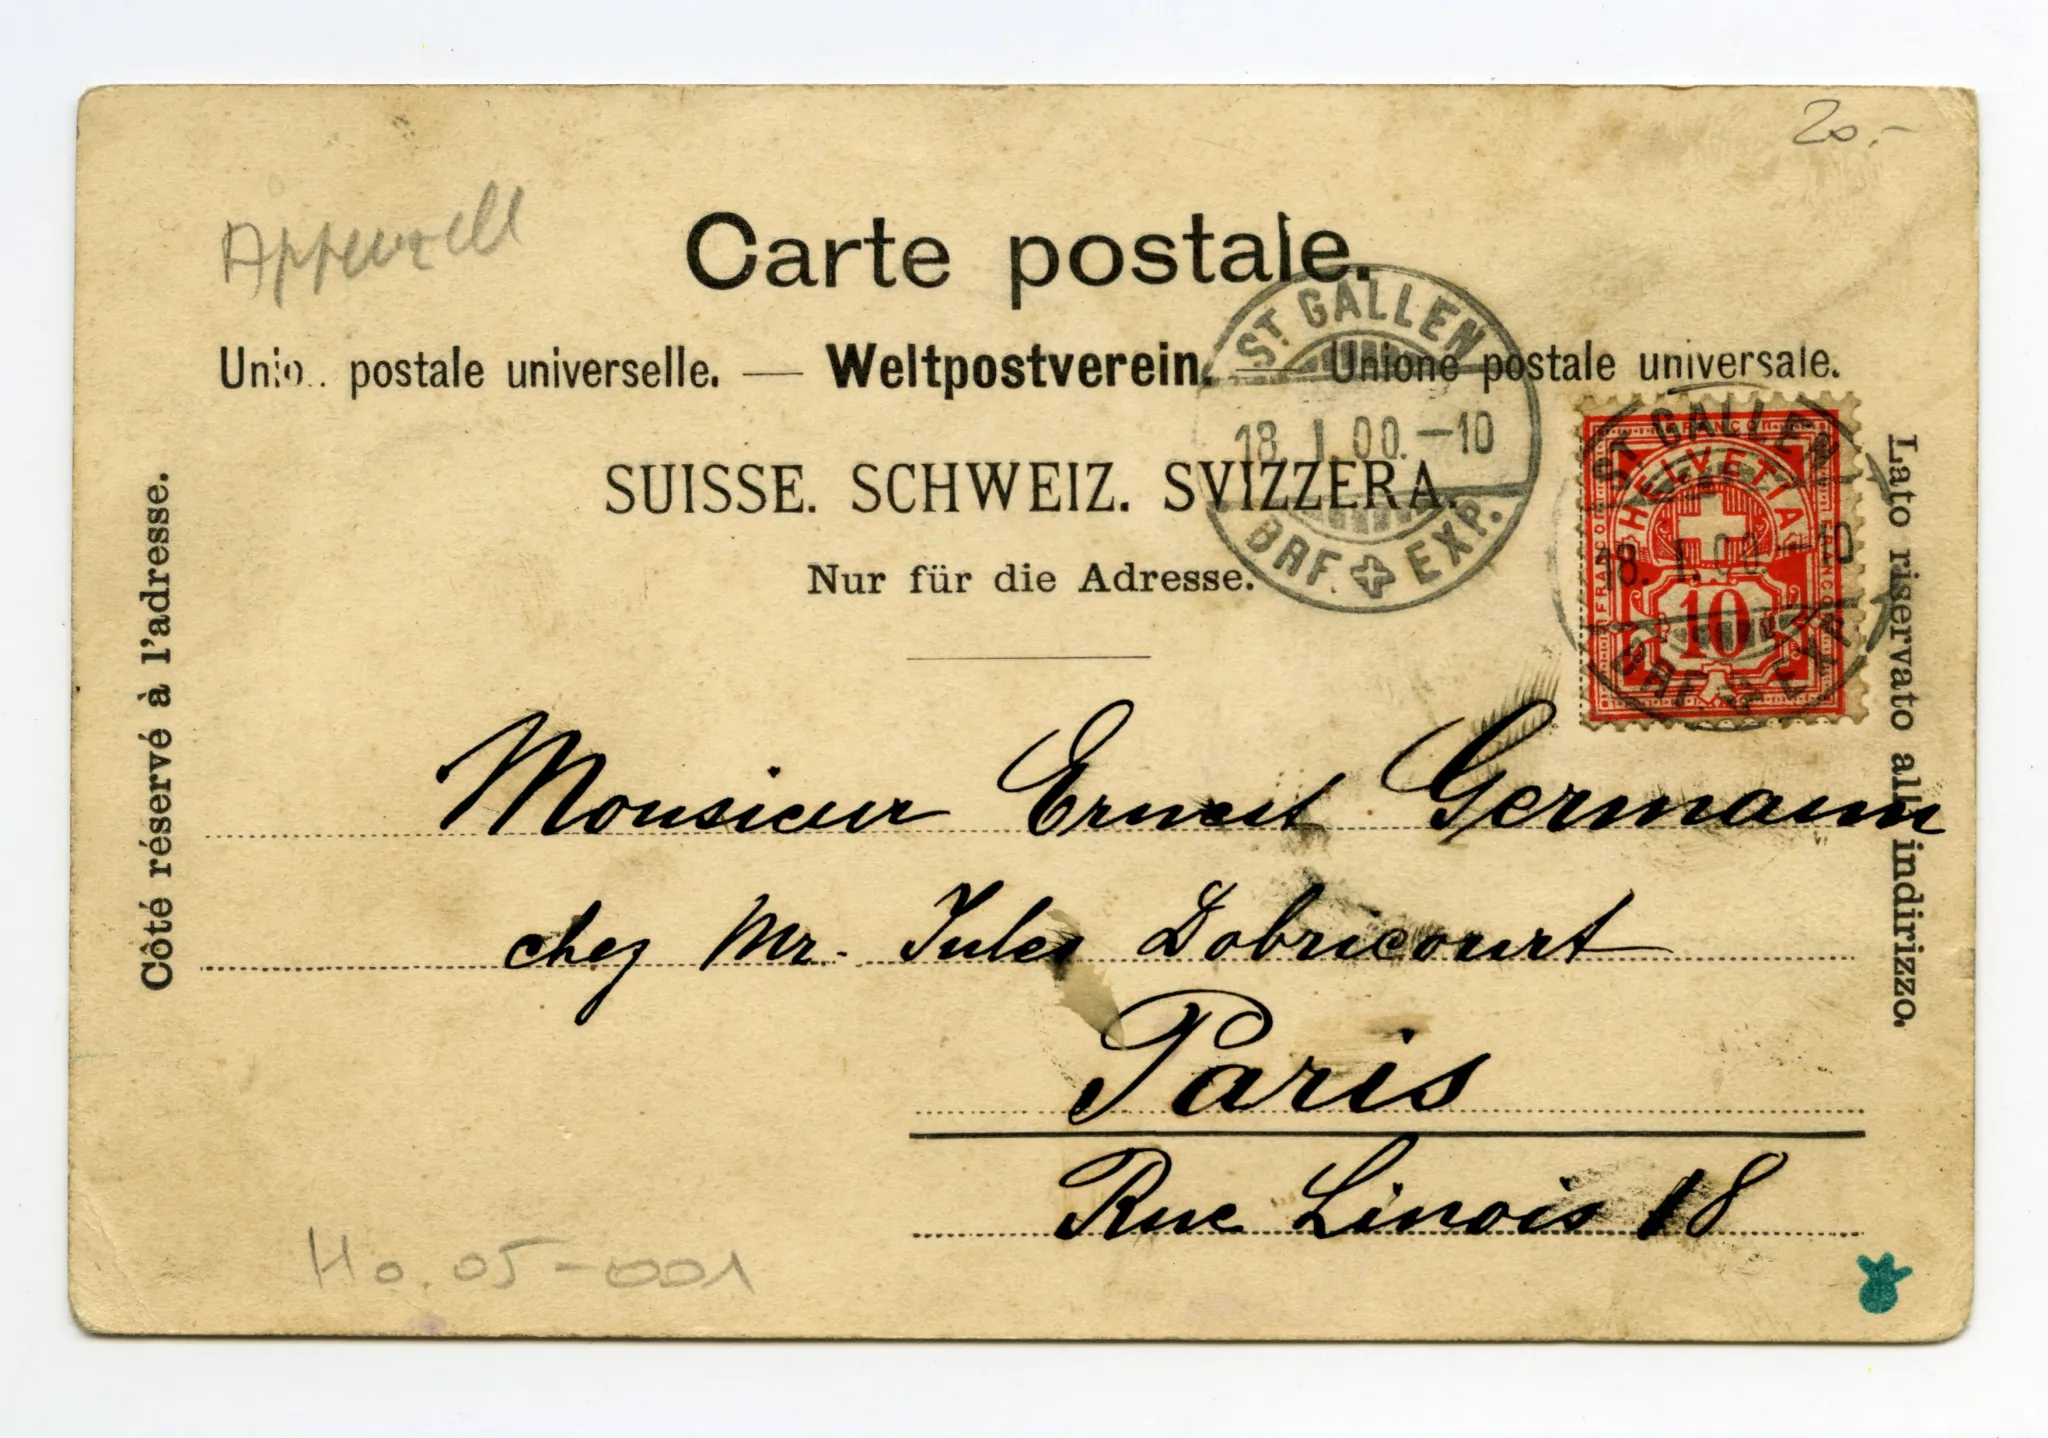 20.-
Appenzell
Carte postale.
Unio.. postale universelle. — Weltpostverein. — Unione postale universale.
SUISSE. SCHWEIZ. SVIZZERA.
Nur für die Adresse.
ST GALLEN
18. I. 00. -10
BRF. EXP.
ST GALLEN
18. I. 00 -10
BRF. EXP.
FRANCO
HELVETIA
FRANCO
FRANCO
10
Côté réservé à l'adresse.
Lato riservato all'indirizzo.
Monsieur Ernest Germann
chez Mr. Jules Dobricourt
Paris
Rue Linois 18
Ho. 05-001